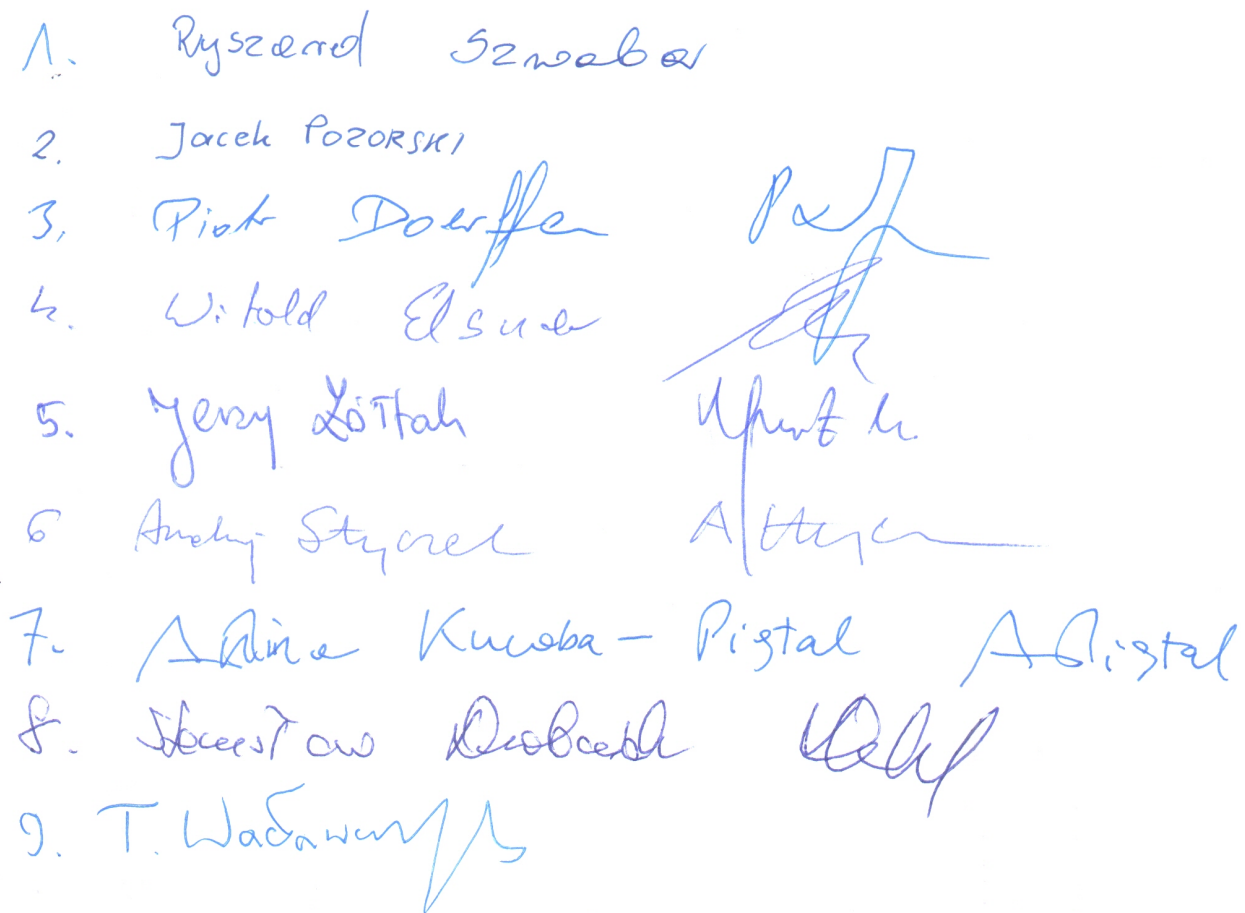 1. Ryszard Szwaba
2. Jacek POZORSKI
3. Piotr Doerffer
4. Witold Elsner
5. Jerzy Żółtak
6 Andrzej Styczek
7. Alina Kucaba - Piętal A Piętal
8. Stanisław Drobniak
9. T. Wacławczyk